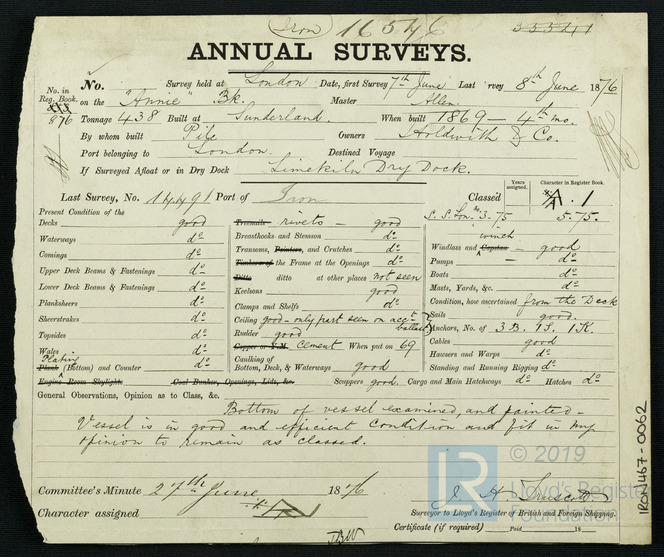 Iron 16576
ANNUAL SURVEYS.
No. in Reg. Book. 876
No. Survey held at London Date, first Survey 7th June Last Survey 8th June 1876
on the "Annie" Bk. Master Allen
Tonnage 438 Built at Sunderland. When built 1869 - 4th mo.
By whom built Pile Owners Holdwith & Co.
Port belonging to London. Destined Voyage
If Surveyed Afloat or in Dry Dock Limekiln Dry Dock.
Last Survey, No. 14491 Port of Iron
Classed
Years assigned.
Character in Register Book.
A.1
S.S. Lon. 3-75 5.75.
Present Condition of the
Decks good
Waterways do
Comings do
Upper Deck Beams & Fastenings do
Lower Deck Beams & Fastenings do
Planksheers do
Sheerstrakes do
Topsides do
Wales do
Plating
Plank (Bottom) and Counter do
Engine Room Skylights Coal Bunker, Openings, Lids, &c.
Treenails rivets - good
Breasthooks and Stemson do
Transoms, Pointers, and Crutches do
Timbers of the Frame at the Openings do
Ditto ditto at other places not seen
Keelsons good
Clamps and Shelfs do
Ceiling good - only part seen on acct ballast
Rudder good
Copper or Y.M. Cement When put on 69
Caulking of
Bottom, Deck, & Waterways good
winch
Windlass and Capstan - good
Pumps - do
Boats do
Masts, Yards, &c. do
Condition, how ascertained from the Deck
Sails good
Anchors, No. of 3B. 1S. 1K.
Cables good
Hawsers and Warps do
Standing and Running Rigging do
Scuppers good. Cargo and Main Hatchways do Hatches do
General Observations, Opinion as to Class, &c.
Bottom of vessel examined, and painted -
Vessel is in good and efficient condition and fit in my
opinion to remain as classed.
Committee's Minute 27th June 1876
Character assigned
J H Truscott
Surveyor to Lloyd's Register of British and Foreign Shipping.
Certificate (if required) Paid 18
IRON467-0062
© 2019
LR
Lloyd's Register
Foundation